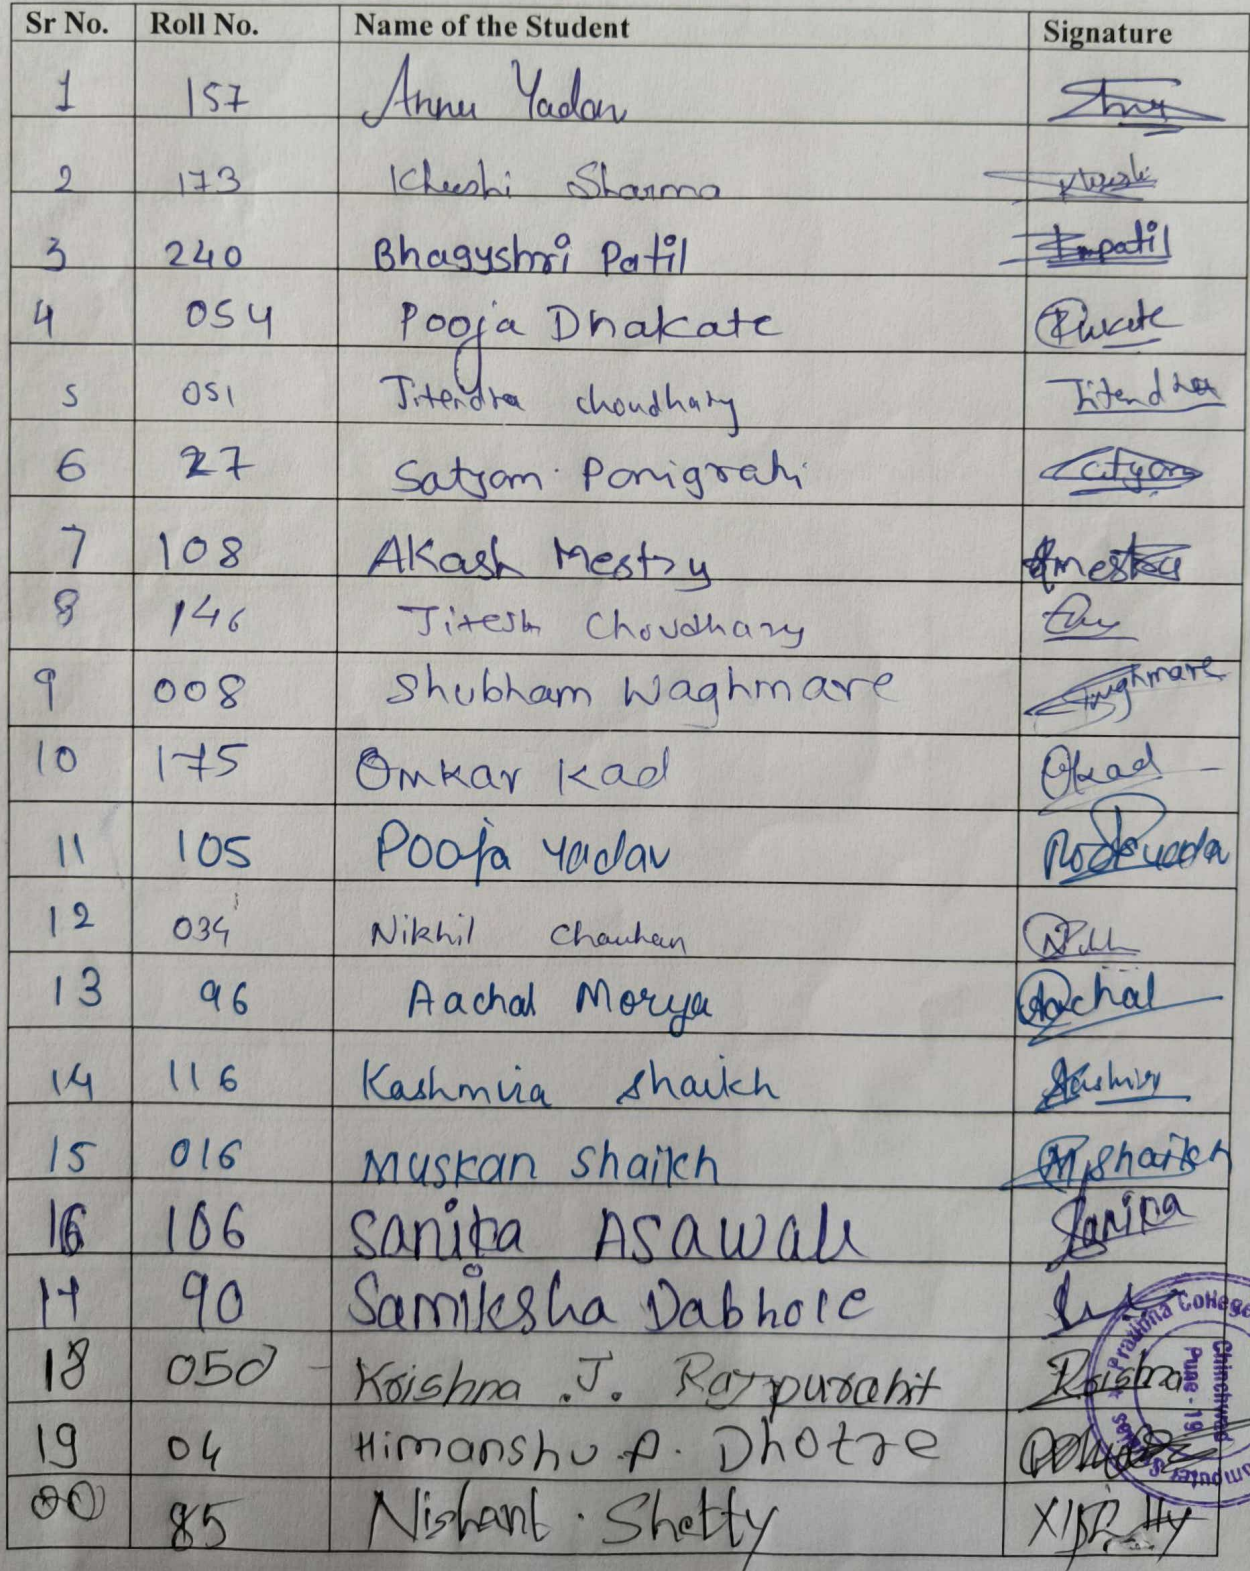 Sr No. Roll No. Name of the Student Signature
1 157 Annu Yadav
2 173 Khushi Sharma Khushi
3 240 Bhagyshri Patil Bmpatil
4 054 Pooja Dhakate
5 051 Jitendra choudhary Jitendra
6 27 Satyam Panigrahi Satyam
7 108 AKash Mestry Amestry
8 146 Jitesh Choudhary
9 008 Shubham Waghmare Waghmare
10 175 Omkar Kad Okad
11 105 Pooja Yadav
12 034 Nikhil Chauhan
13 96 Aachal Morya Aachal
14 116 Kashmira Shaikh
15 016 Muskan Shaikh M.Shaikh
16 106 Sanika ASawale Sanika
17 90 Samiksha Dabhole
18 050 Krishna .J. Rajpurohit Krishna
19 04 Himanshu .P. Dhotre
20 85 Nishant . Shetty
Pratibha College
Chinchwad
Pune - 19
Computer